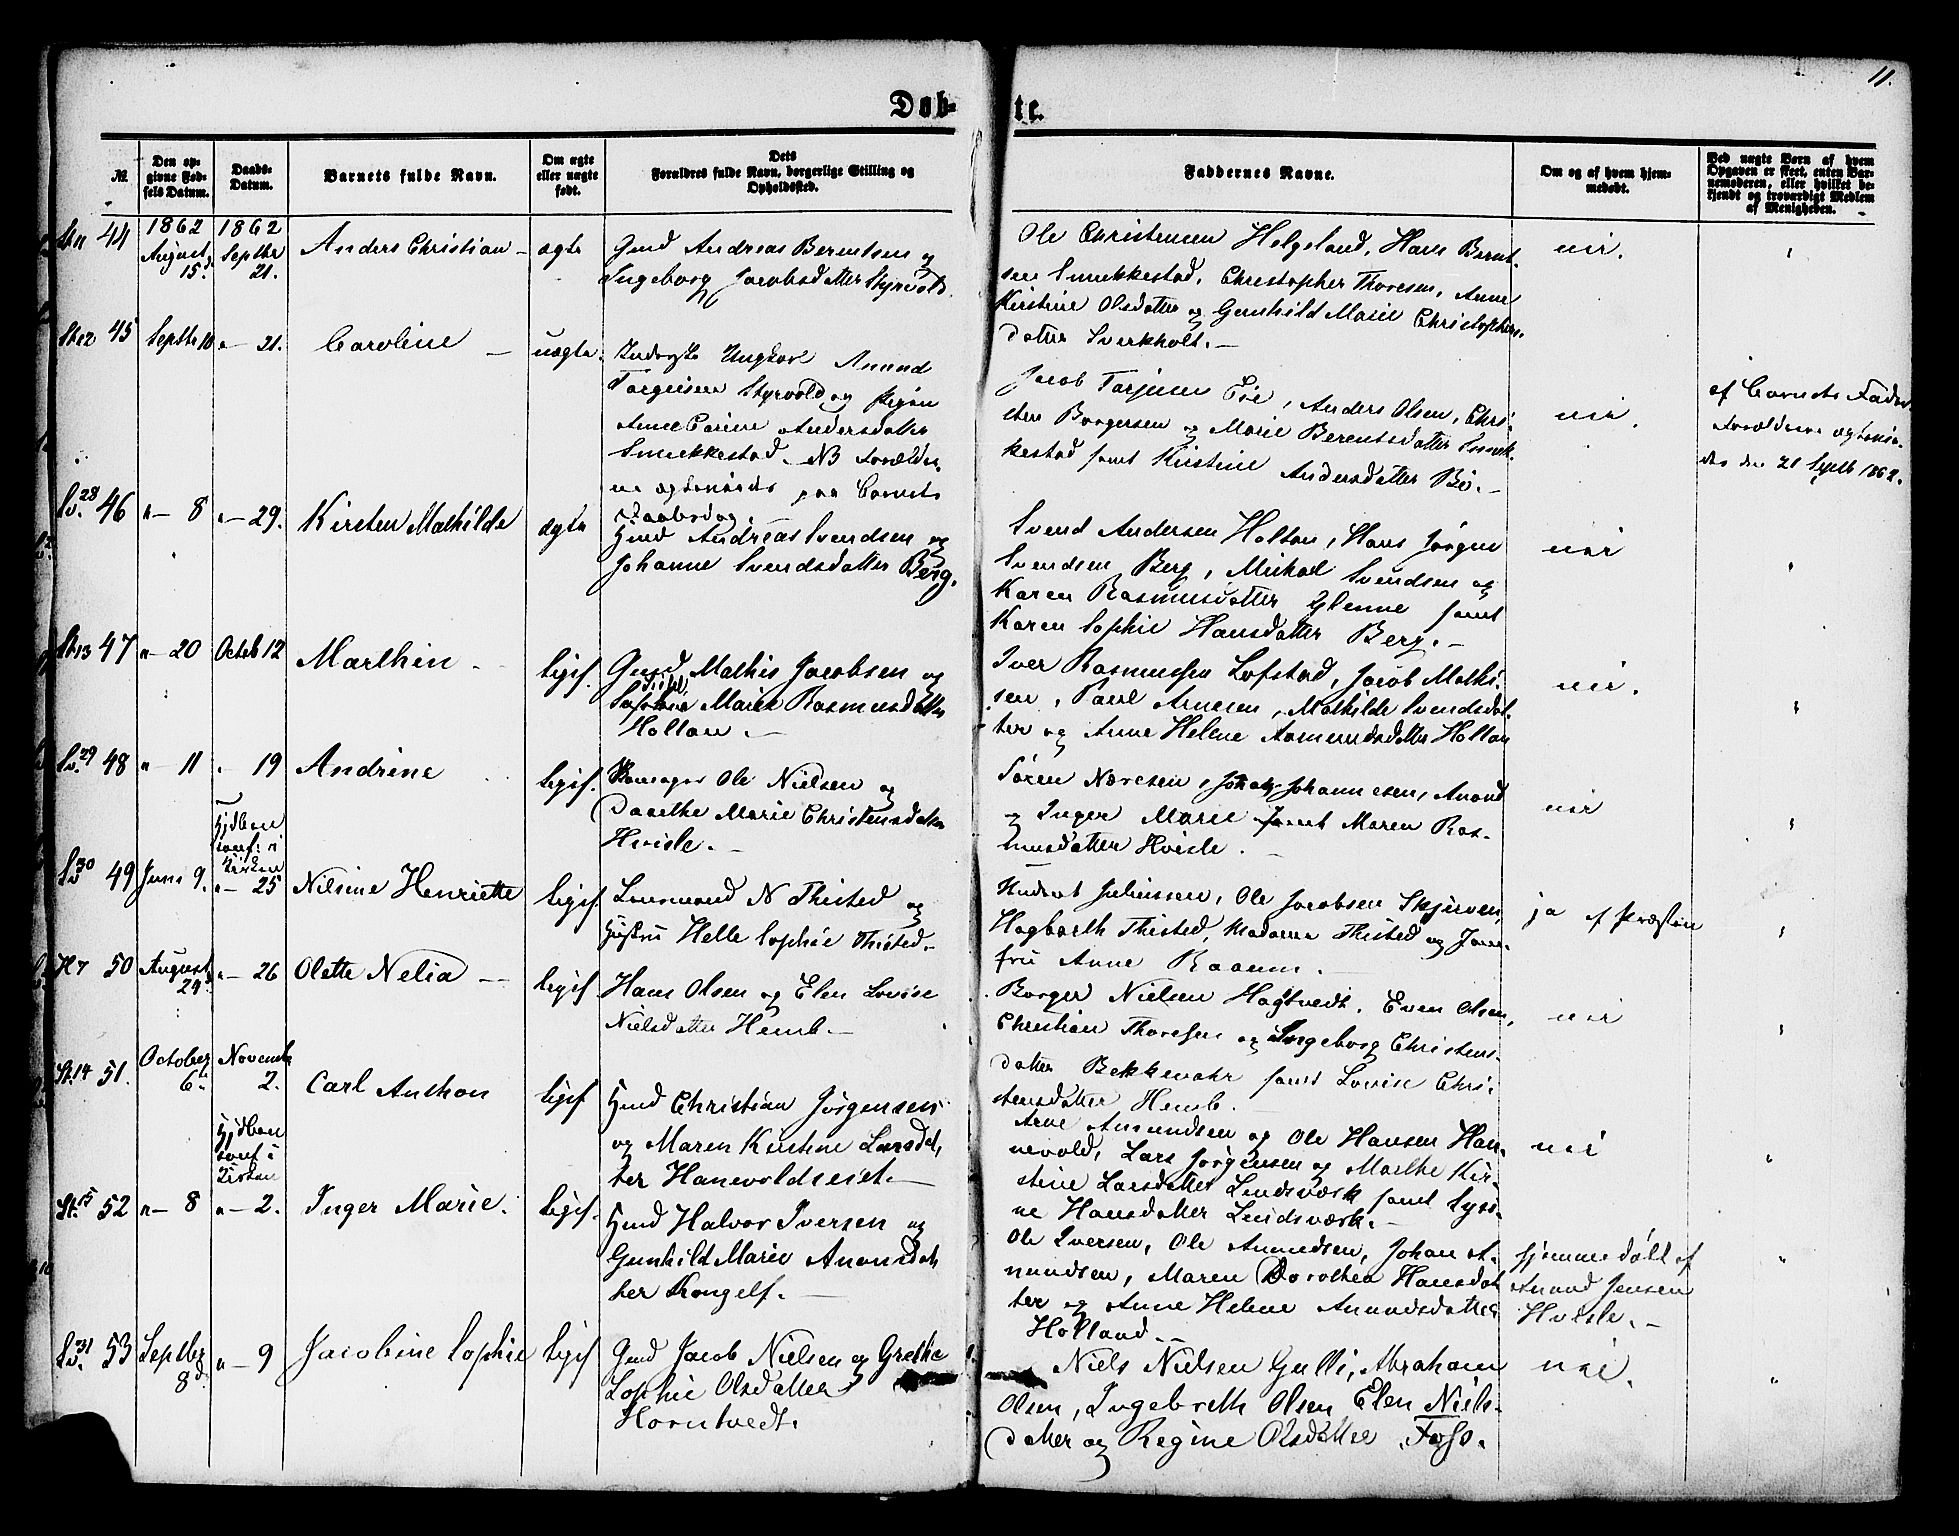 11.
Døb-
te.
№
Den op-
givne Fød-
sels Datum.
Daabs-
Datum.
Barnets fulde Navn.
Om ægte
eller uægte
født.
Dets
Forældres fulde Navn, borgerlige Stilling og
Opholdssted.
Faddernes Navne.
Om og af hvem hjem-
medøbt.
Ved uægte Børn af hvem
Opgaven er skeet, enten Bar-
nemoderen, eller hvilket be-
kjendt og troværdigt Medlem
af Menigheden.
44
1862
August
15.
1862
Septbr
21.
Anders Christian
ægte
Gmd Andreas Berentsen og
Ingeborg Jacobsdatter Styrvold.
Ole Christensen Helgeland, Hans Bernt-
sen Smukkestad, Christopher Thoresen, Anne
Kirstine Olsdatter og Gunhild Marie Christophers-
datter Sverkholt.
nei.
45
Septbr 10
" 21.
Caroline
uægte.
Ungkarl Anund
Torgeirsen Styrvold og Pigen
Anne Carine Andersdatter
Smukkestad. NB Forældre-
ne ægteviede paa Barnets
Daabsdag.
Jacob Tarjusen Eie, Anders Olsen, Chri-
sten Borgersen og Marie Berentsdatter Smuk-
kestad samt Kirstine Andersdatter Bö.
nei.
af Barnets Fader
Forældrene ægtevie-
des den 21 Septb 1862.
28
46
" 8
" 29.
Kirsten Mathilde
ægte
Hmd Andreas Svendsen og
Johanne Svendsdatter Berg.
Svend Andersen Holtan, Hans Jörgen
Svendsen Berg, Michael Svendsen og
Karen Rasmusdatter Glenne samt
Karen Sophie Hansdatter Berg.
nei
St 13
47
" 20
Octob 12
Marthin
liges.
Gmd Mathis Jacobsen og
Marie Rasmusdatter
Holtan.
Iver Rasmussen Lofstad, Jacob Mathi-
sen, Paul Arnesen, Mathilde Svendsdat-
ter og Anne Helene Aamundsdatter Holtan
nei.
29
48
" 11
" 19
Andrine
liges.
Skomager Ole Nielsen og
Dorthe Marie Christensdatter
Hvisle.
Sören Næresen, Johannesen, Anund
og Inger Marie samt Maren Ras-
musdatter Hvisle.
nei
Hjdben
conf: i
Kirken
30
49
Juni 9.
" 25
Nilsine Henriette
liges.
Lensmand N Thisted og
Hustru Helle Sophie Thisted.
Student Juliussen, Ole Jacobsen Skjerven,
Hagbarth Thisted, Madame Thisted og Jom-
fru Anne Raaum.
ja af Præsten
H 7
50
August
24
" 26
Olette Nelia
liges
Hans Olsen og Elen Lovise
Nielsdatter Hemb.
Borger Nielsen Hagtvedt, Even Olsen,
Christian Thoresen og Ingeborg Christens-
datter Bekkevahr samt Lovise Chri-
stensdatter Hemb.
nei
St. 14
51.
October
6
Novembr
2.
Carl Anthon
liges
Hmd Christian Jörgensen
og Maren Kirstine Larsdat-
ter Hanevoldseiet.
Arne Amundsen og Ole Hansen Han-
nevold, Lars Jörgensen og Marthe Kir-
stine Larsdatter Lindsværk samt Lysi-
ne Hansdatter Lindsværk.
nei
Hjdben
conf i
Kirken
St. 15
52
" 8
" 2.
Inger Marie.
liges.
Hmd Halvor Iversen og
Gunhild Marie Anundsdat-
ter Krongelf.
Ole Iversen, Ole Anundsen, Johan A-
nundsen, Maren Dorothea Hansdat-
ter og Anne Helene Anundsdatter
Holland.
hjemmedöbt af
Anund Jensen
Hvisle.
31
53
Septber
8
" 9
Jacobine Sophie
liges
Gmd Jacob Nielsen og Grethe
Sophie Olsdatter
Horntvedt.
Niels Nielsen Gulli, Abraham
Olsen, Ingebreth Olsen Elen Niels-
datter og Regine Olsdatter Fosso.
nei.